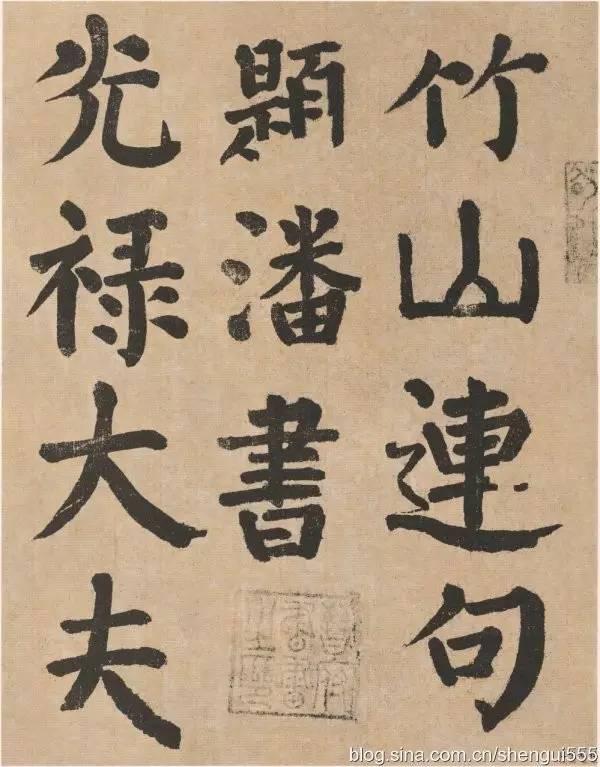 竹山連句
題潘書
光禄大夫
blog.sina.com.cn/shengui555